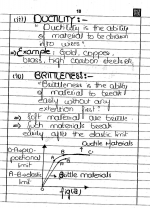 18
(iii) DUCTILITY:-
Ductility is the ability
of material to be drawn
into wires.
⇒ Example: Gold, copper,
brass, high carbon steel etc.
(iv) BRITTLENESS:-
Brittleness is the ability
of material to break
easily without any
extension first.
⇒ materials are brittle
⇒ Such materials break
easily after the elastic limit
Ductile Materials
O-A = pro-
portional
limit
A-B = elastic
limit
Brittle materials